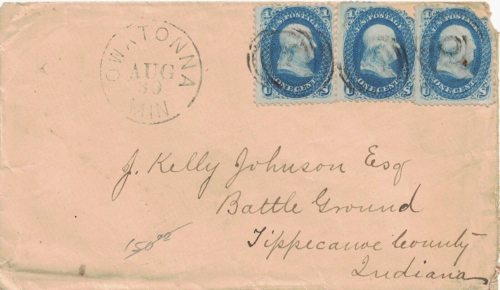 OWATONNA
AUG
30
MIN
U.S. POSTAGE
ONE CENT
U.S. POSTAGE
ONE CENT
U.S. POSTAGE
ONE CENT
J. Kelly Johnson Esq
Battle Ground
Tippecanoe County
Indiana